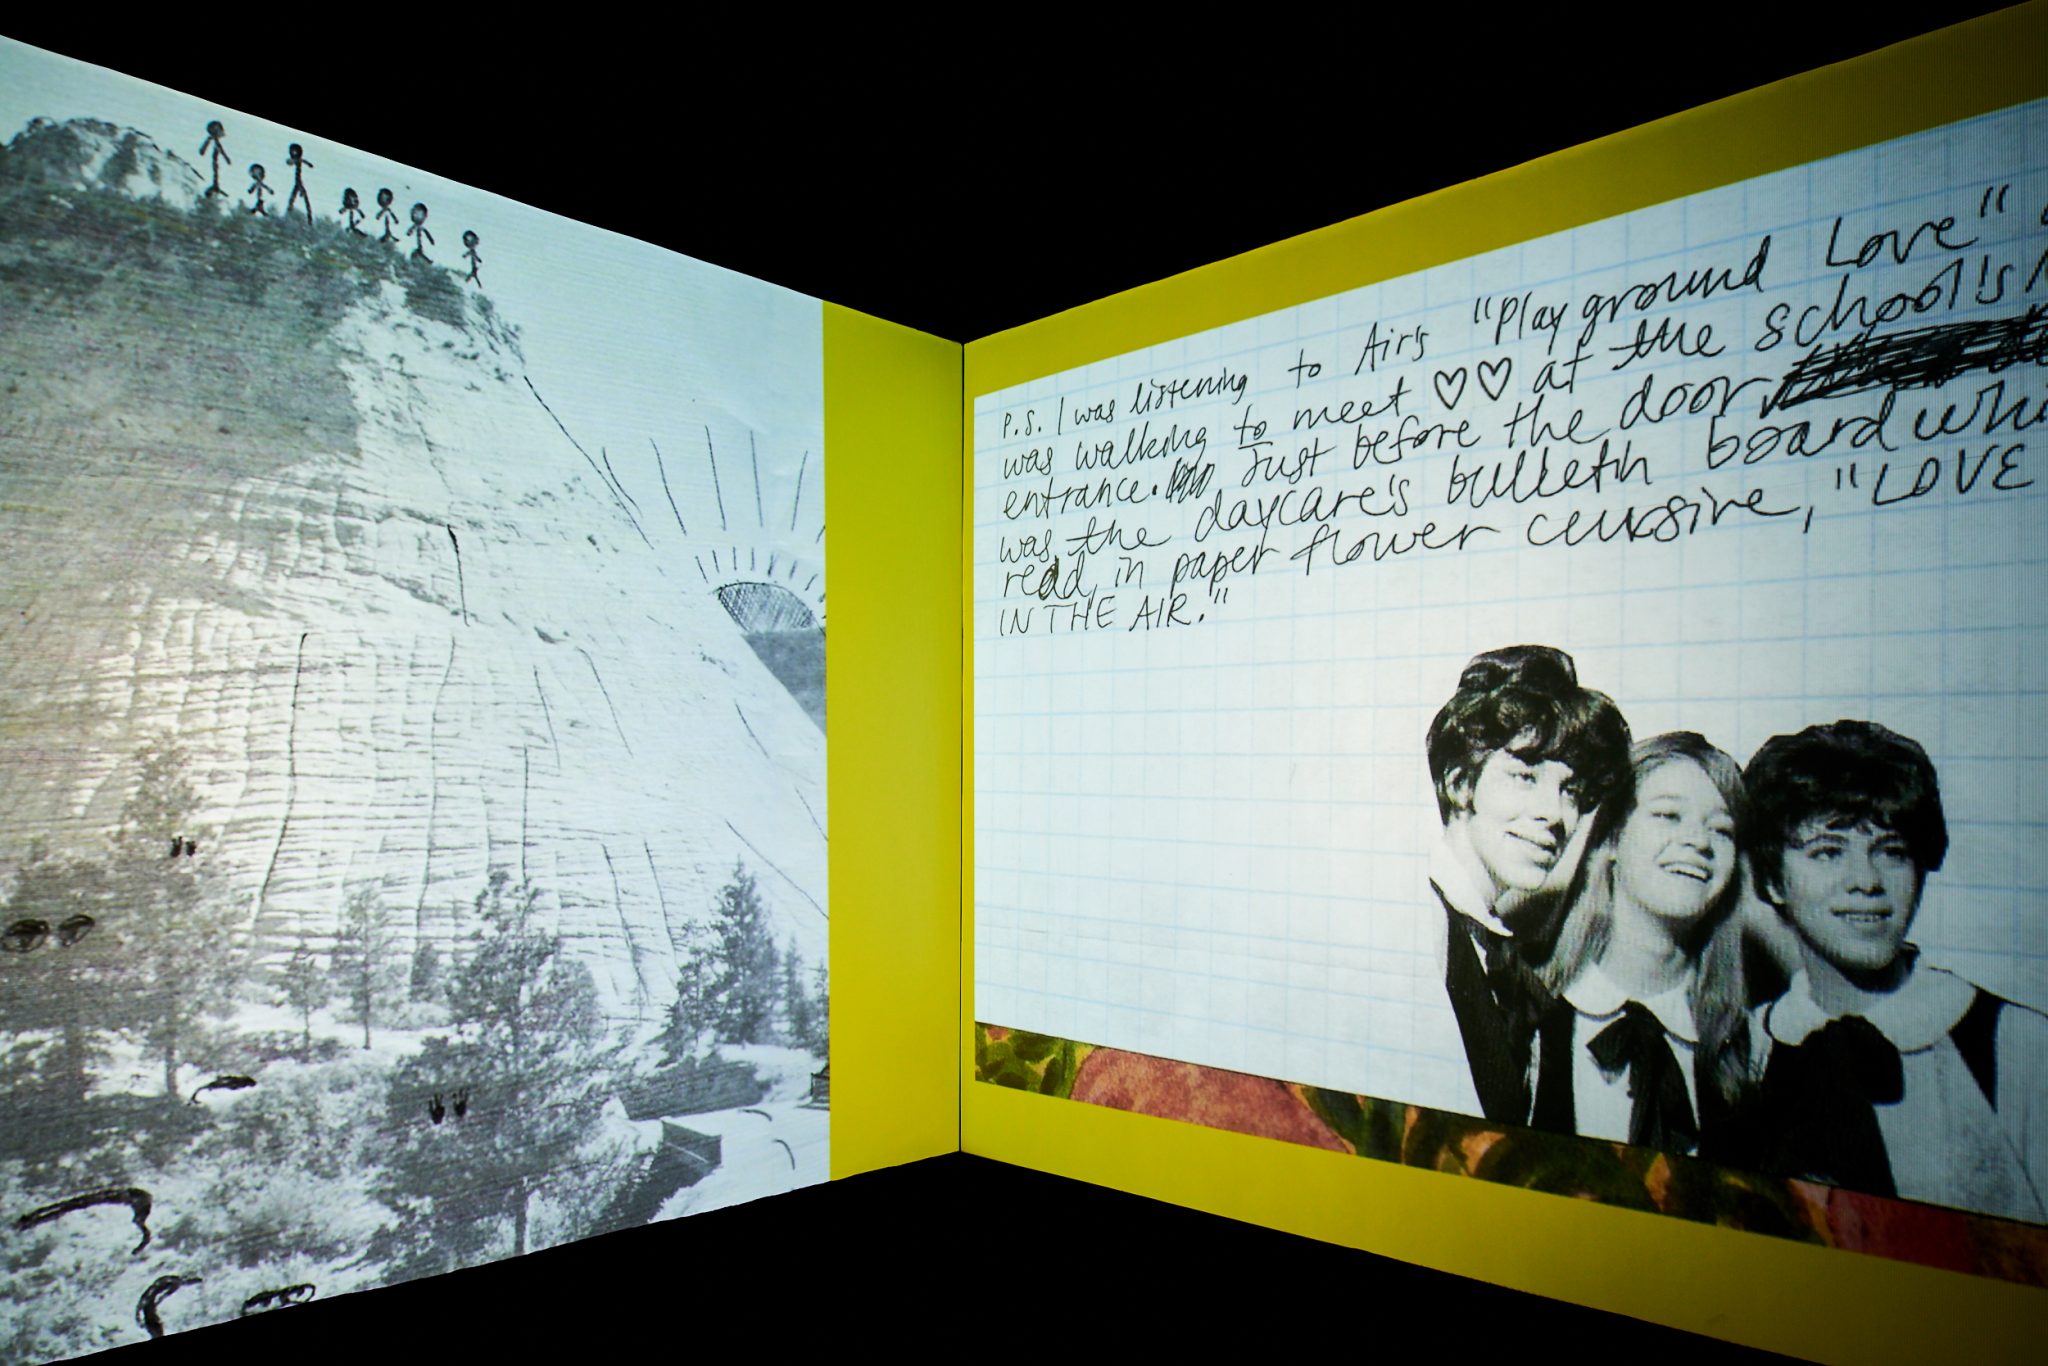 P.S. I was listening to Air's "Playground Love"
was walking to meet ♡♡ at the school's
entrance. Just before the door
was the daycare's bulletin board
read in paper flower cursive, "LOVE
IN THE AIR."